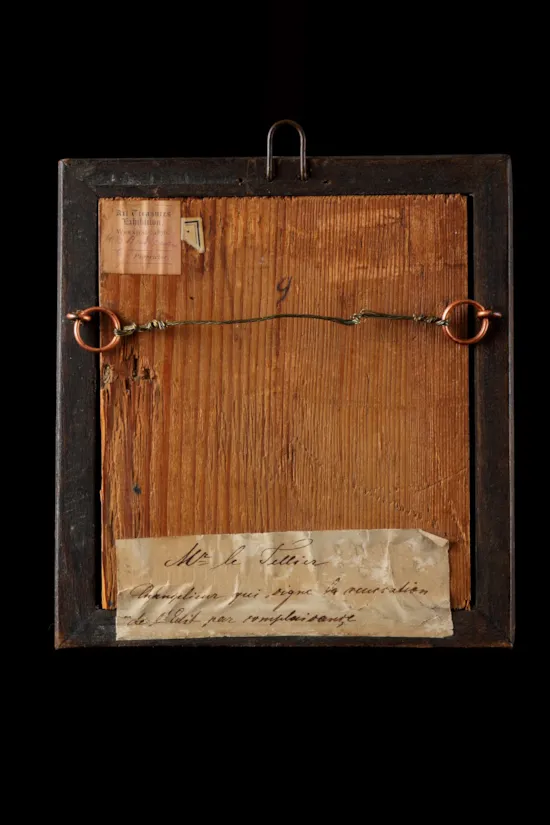 Art Treasures
Exhibition
9
Mr. le Tellier
Changelieur qui signe la revocation
de l'Edit par complaisance